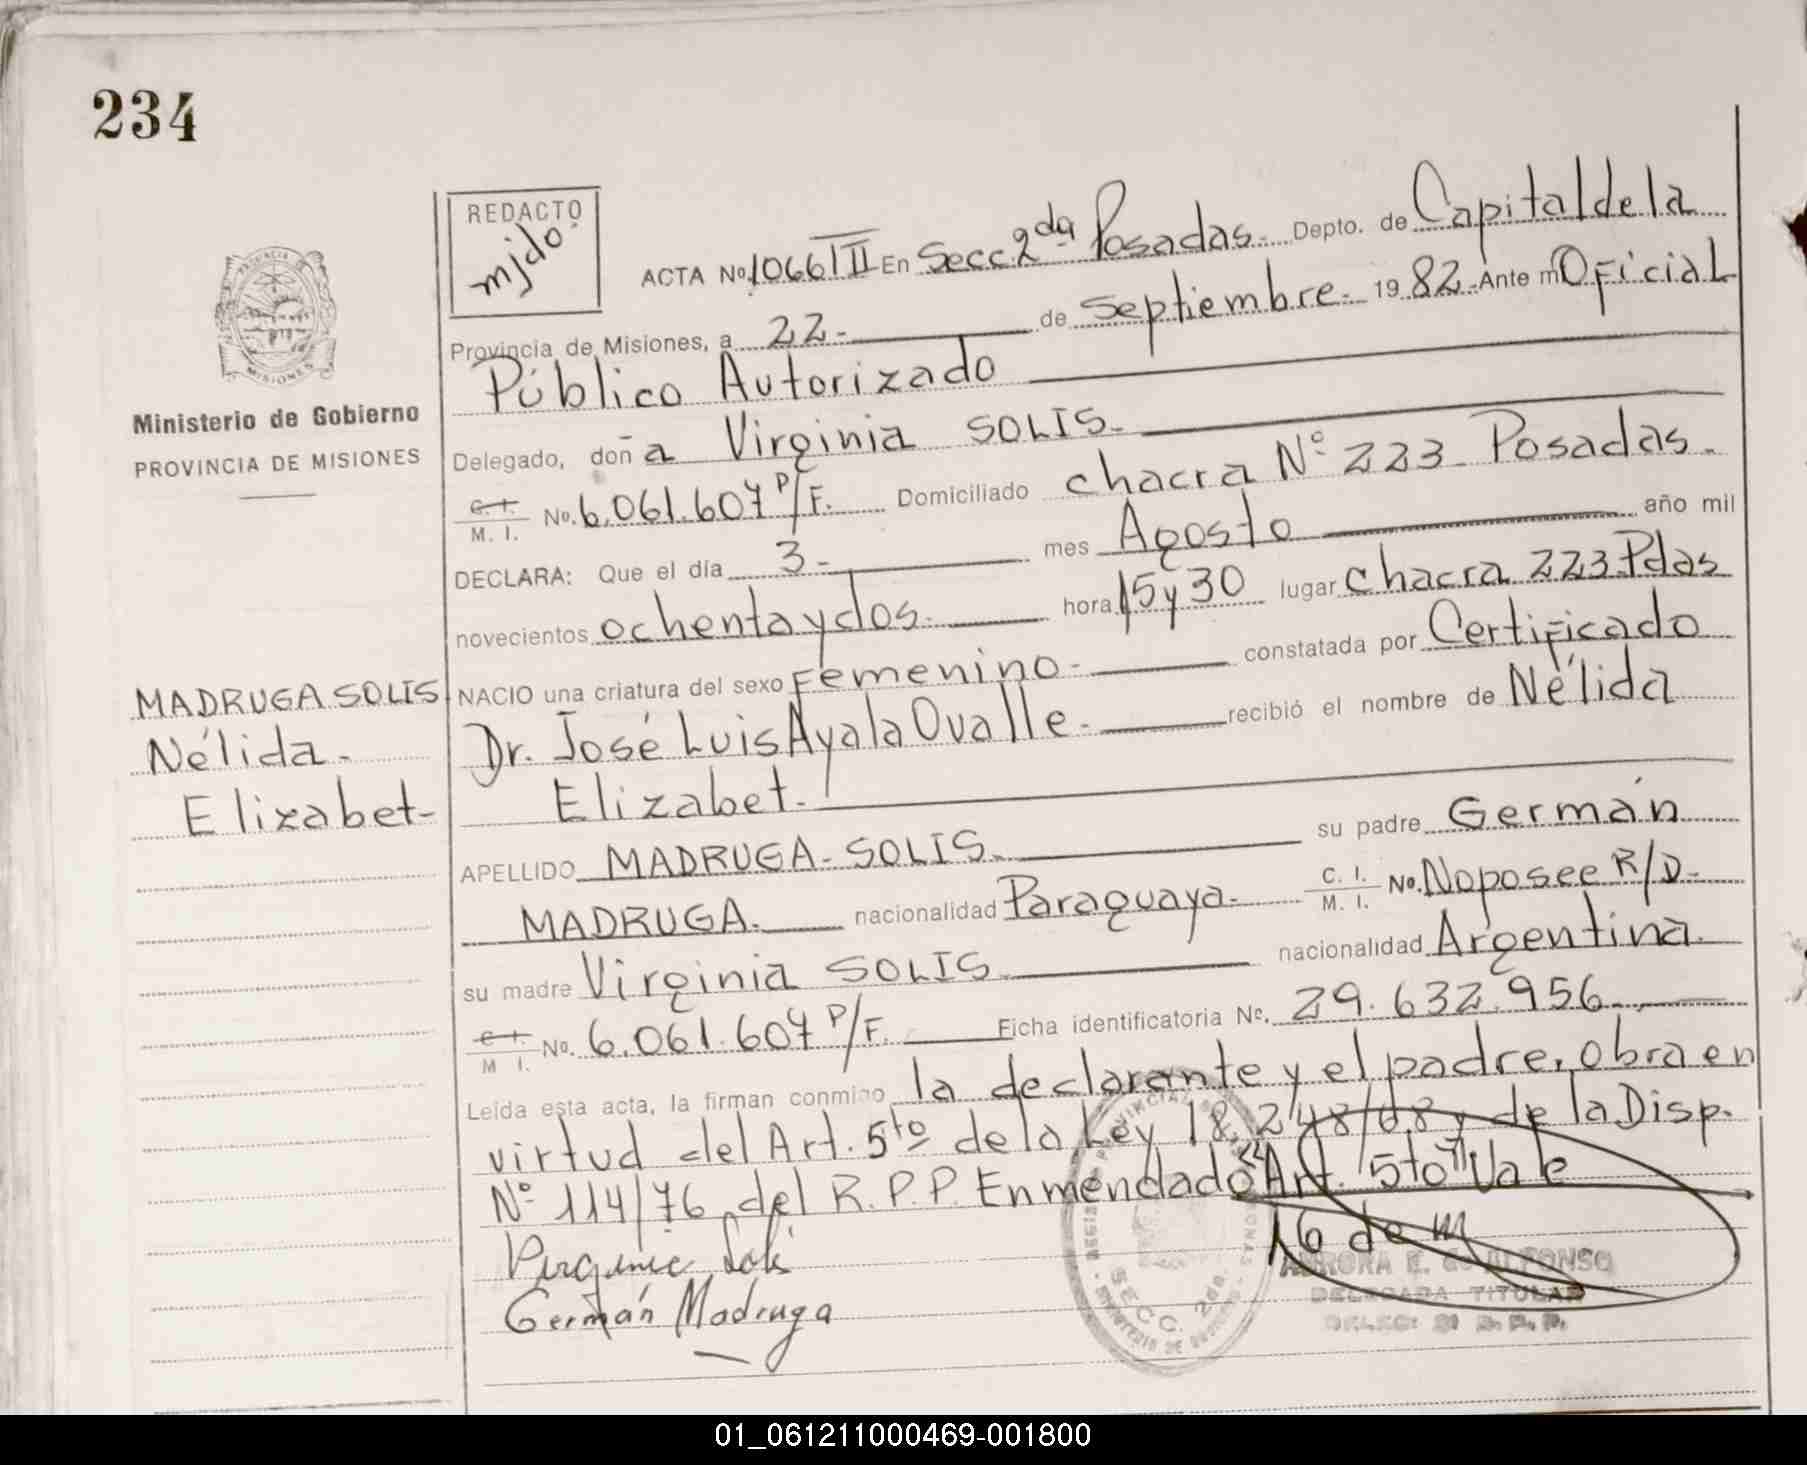 234
REDACTO
mjdo.
ACTA No. 1066 TII En Secc. 2da Posadas. Depto. de Capital de la
Provincia de Misiones, a 22.- de Septiembre.- 1982.- Ante mí Oficial
Público Autorizado
Delegado, doña Virginia SOLIS.-
C.I. / M. I. No. 6.061.607 P/F. Domiciliado chacra Nº 223 Posadas.
DECLARA: Que el día 3.- mes Agosto año mil
novecientos ochenta y dos.- hora 15 y 30 lugar chacra 223 Pdas
NACIO una criatura del sexo Femenino.- constatada por Certificado
Dr. José Luis Ayala Ovalle.- recibió el nombre de Nélida
Elizabet.-
APELLIDO MADRUGA-SOLIS.- su padre Germán
MADRUGA.- nacionalidad Paraguaya.- C. I. / M. I. No. No posee R/D.-
su madre Virginia SOLIS.- nacionalidad Argentina.
C.I. / M I. No. 6.061.607 P/F. Ficha identificatoria No. 29.632.956.-
Leída esta acta, la firman conmigo la declarante y el padre. Obra en
virtud del Art. 5to de la Ley 18.248/68 y de la Disp.
Nº 114/76 del R.P.P. Enmendado "Art. 5to" Vale
Virginia Solis
Germán Madruga
PROVINCIA DE
MISIONES
Ministerio de Gobierno
PROVINCIA DE MISIONES
MADRUGA SOLIS
Nélida.-
Elizabet-
SECC. 2da.
AURORA E. de ALFONSO
DELEGADA TITULAR
01_061211000469-001800